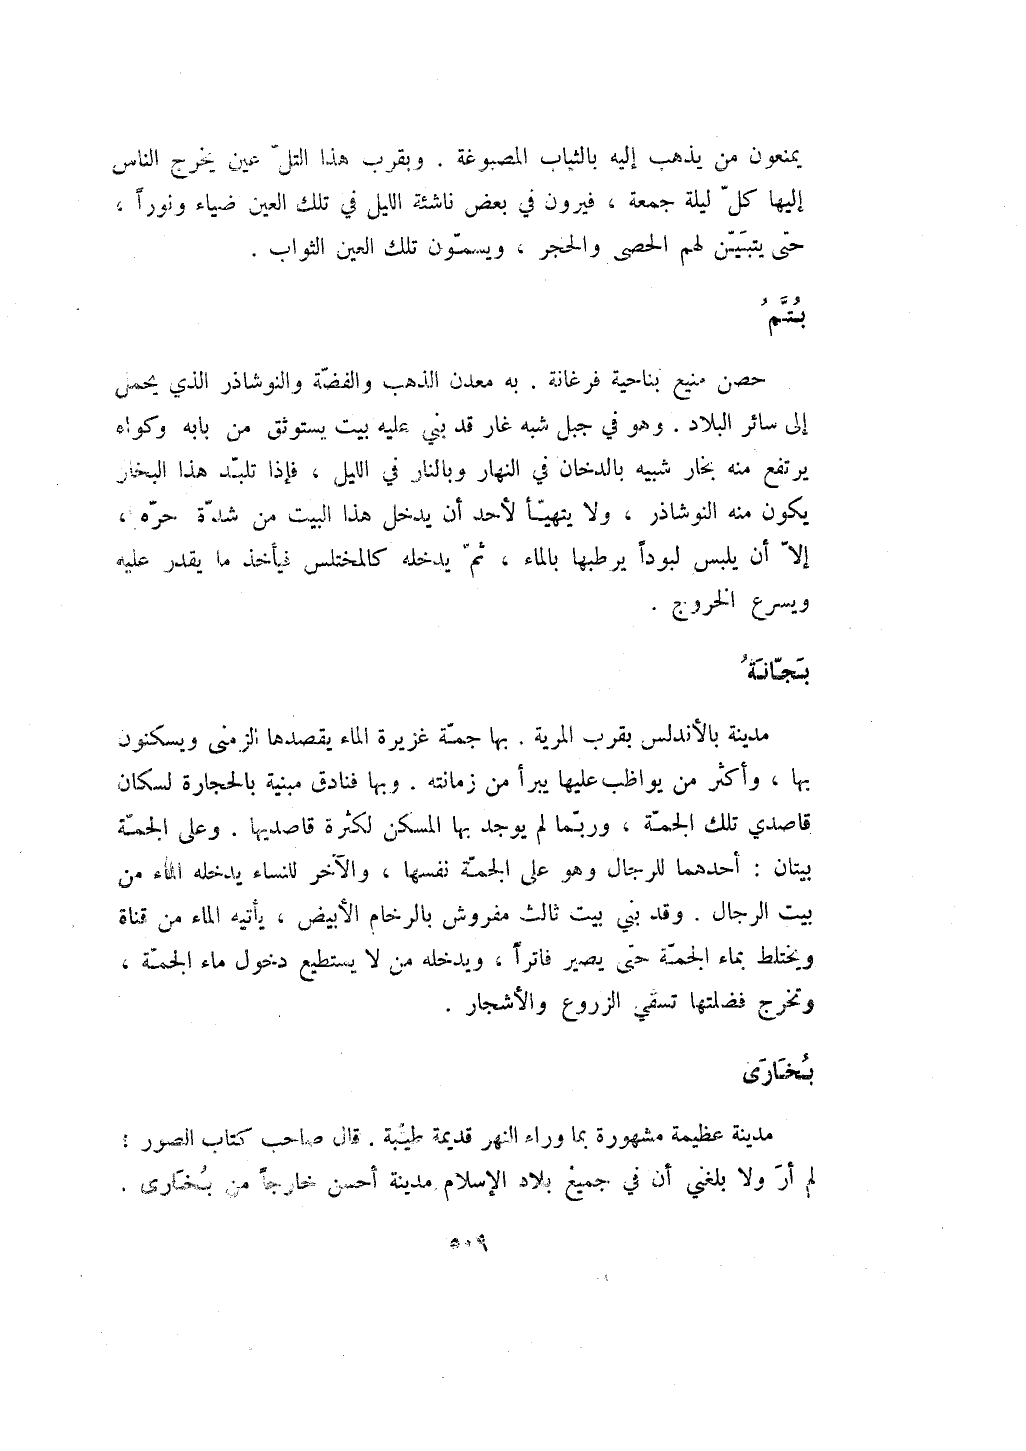 يمنعون من يذهب إليه بالثياب المصبوغة . وبقرب هذا التلّ عين يخرج الناس
إليها كلّ ليلة جمعة ، فيرون في بعض ناشئة الليل في تلك العين ضياء ونوراً ،
حتّى يتبيّن لهم الحصى والحجر ، ويسمّون تلك العين الثواب .
بُتَّمُ
حصن منيع بناحية فرغانة . به معدن الذهب والفضّة والنوشاذر الذي يحمل
إلى سائر البلاد . وهو في جبل شبه غار قد بني عليه بيت يستوثق من بابه وكواه
يرتفع منه بخار شبيه بالدخان في النهار وبالنار في الليل ، فإذا تلبّد هذا البخار
يكون منه النوشاذر ، ولا يتهيّأ لأحد أن يدخل هذا البيت من شدّة حرّه ،
إلاّ أن يلبس لبوداً يرطبها بالماء ، ثمّ يدخله كالمختلس فيأخذ ما يقدر عليه
ويسرع الخروج .
بَجّانَةُ
مدينة بالأندلس بقرب المرية . بها جمّة غزيرة الماء يقصدها الزمنى ويسكنون
بها ، وأكثر من يواظب عليها يبرأ من زمانته . وبها فنادق مبنية بالحجارة لسكان
قاصدي تلك الجمّة ، وربّما لم يوجد بها المسكن لكثرة قاصديها . وعلى الجمّة
بيتان : أحدهما للرجال وهو على الجمّة نفسها ، والآخر للنساء يدخله الماء من
بيت الرجال . وقد بني بيت ثالث مفروش بالرخام الأبيض ، يأتيه الماء من قناة
ويختلط بماء الجمّة حتّى يصير فاتراً ، ويدخله من لا يستطيع دخول ماء الجمّة ،
وتخرج فضلتها تسقي الزروع والأشجار .
بُخَارَى
مدينة عظيمة مشهورة بما وراء النهر قديمة طيّبة . قال صاحب كتاب الصور :
لم أرَ ولا بلغني أن في جميع بلاد الإسلام مدينة أحسن خارجاً من بُخَارى .
٥٠٩